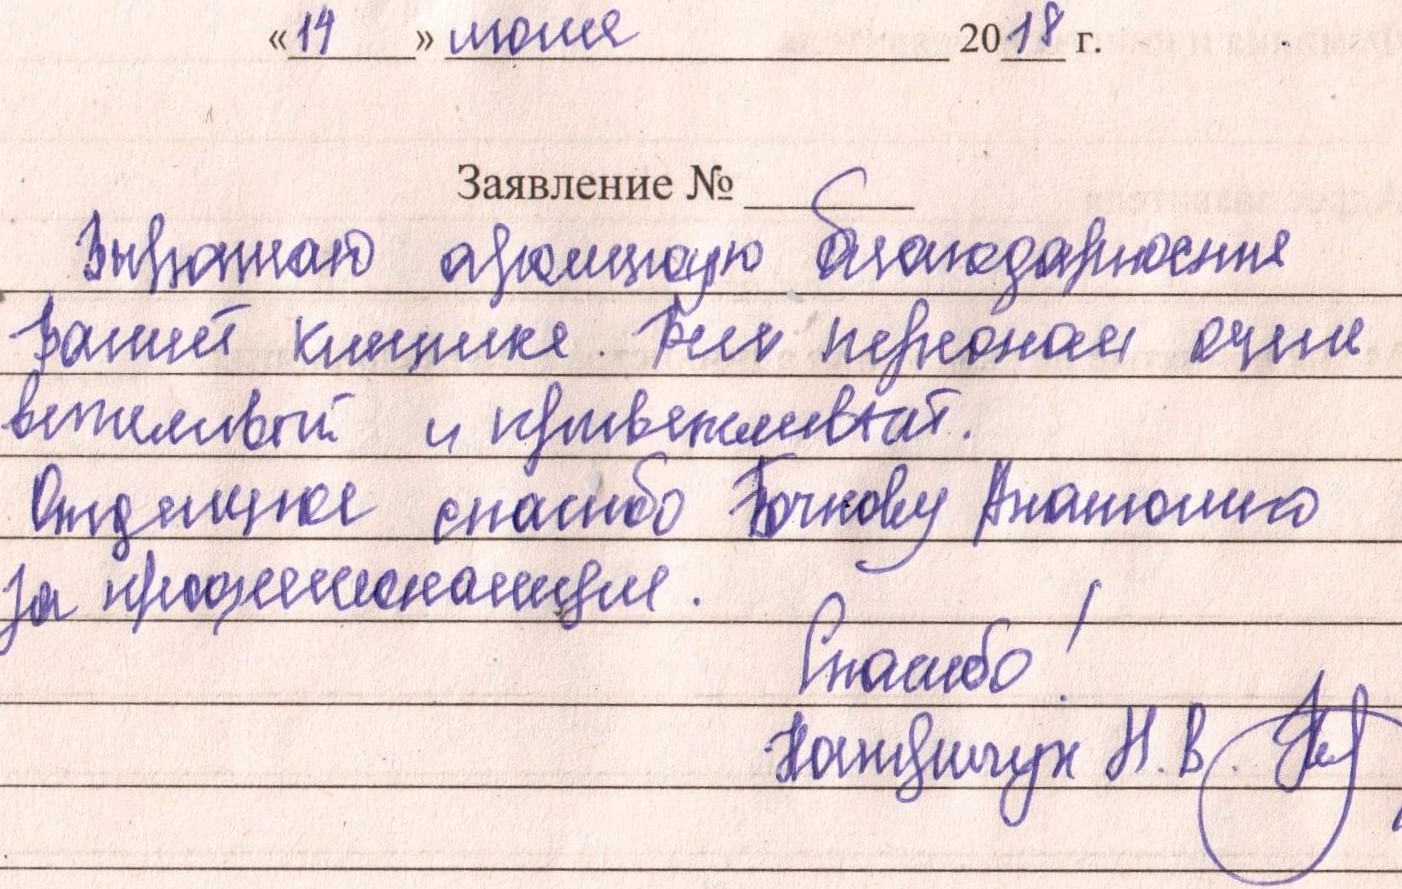 «14» июня 2018 г.
Заявление №
Выражаю огромную благодарность
Вашей клинике. Весь персонал очень
вежливый и приветливый.
Отдельное спасибо Бочкову Анатолию
за профессионализм.
Спасибо!
Н. В.